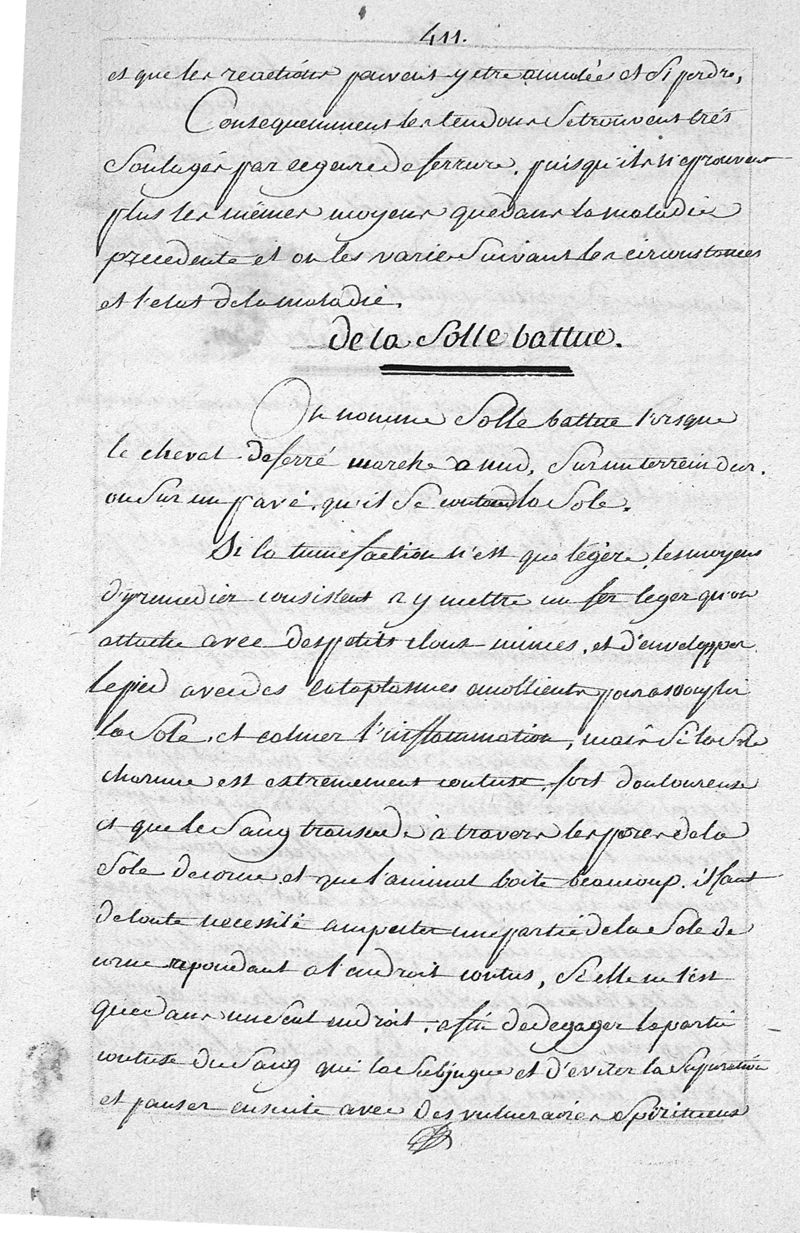 411.
et que les reactions peuvent y etre annulées et s'y perdre,
Consequemment les tendons se trouvent très
soulagés par ce genre de ferrure, puisqu'ils n'eprouvent
plus les mêmes moyens que dans la maladie
precedente et on les varie suivant les circonstances
et l'etat de la maladie.
de la Solle battue.
On nomme Solle battue lorsque
le cheval deferré marche a nud, sur un terrein dur.
ou sur un pavé, qu'il se contond la Sole.
Si la tumefaction n'est que légère, les moyens
d'y remedier consistent a y mettre un fer leger qu'on
attache avec des petits clous minces, et d'envelopper
le pied avec des cataplasmes emollients pour assouplir
la Sole, et calmer l'inflammation, mais Si la Sole
charnue est extremement contuse, fort douloureuse
et que le Sang transude à travers les pores de la
Sole de corne, et que l'animal boite beaucoup, il faut
de toute necessité amporter une partie de la Sole de
corne repondant a l'endroit contus, Si elle ne l'est
que dans un seul endroit, afin de degager la partie
contuse du Sang qui la Subjugue et d'eviter la Supuration
et panser ensuite avec des vulneraires Spiritueux